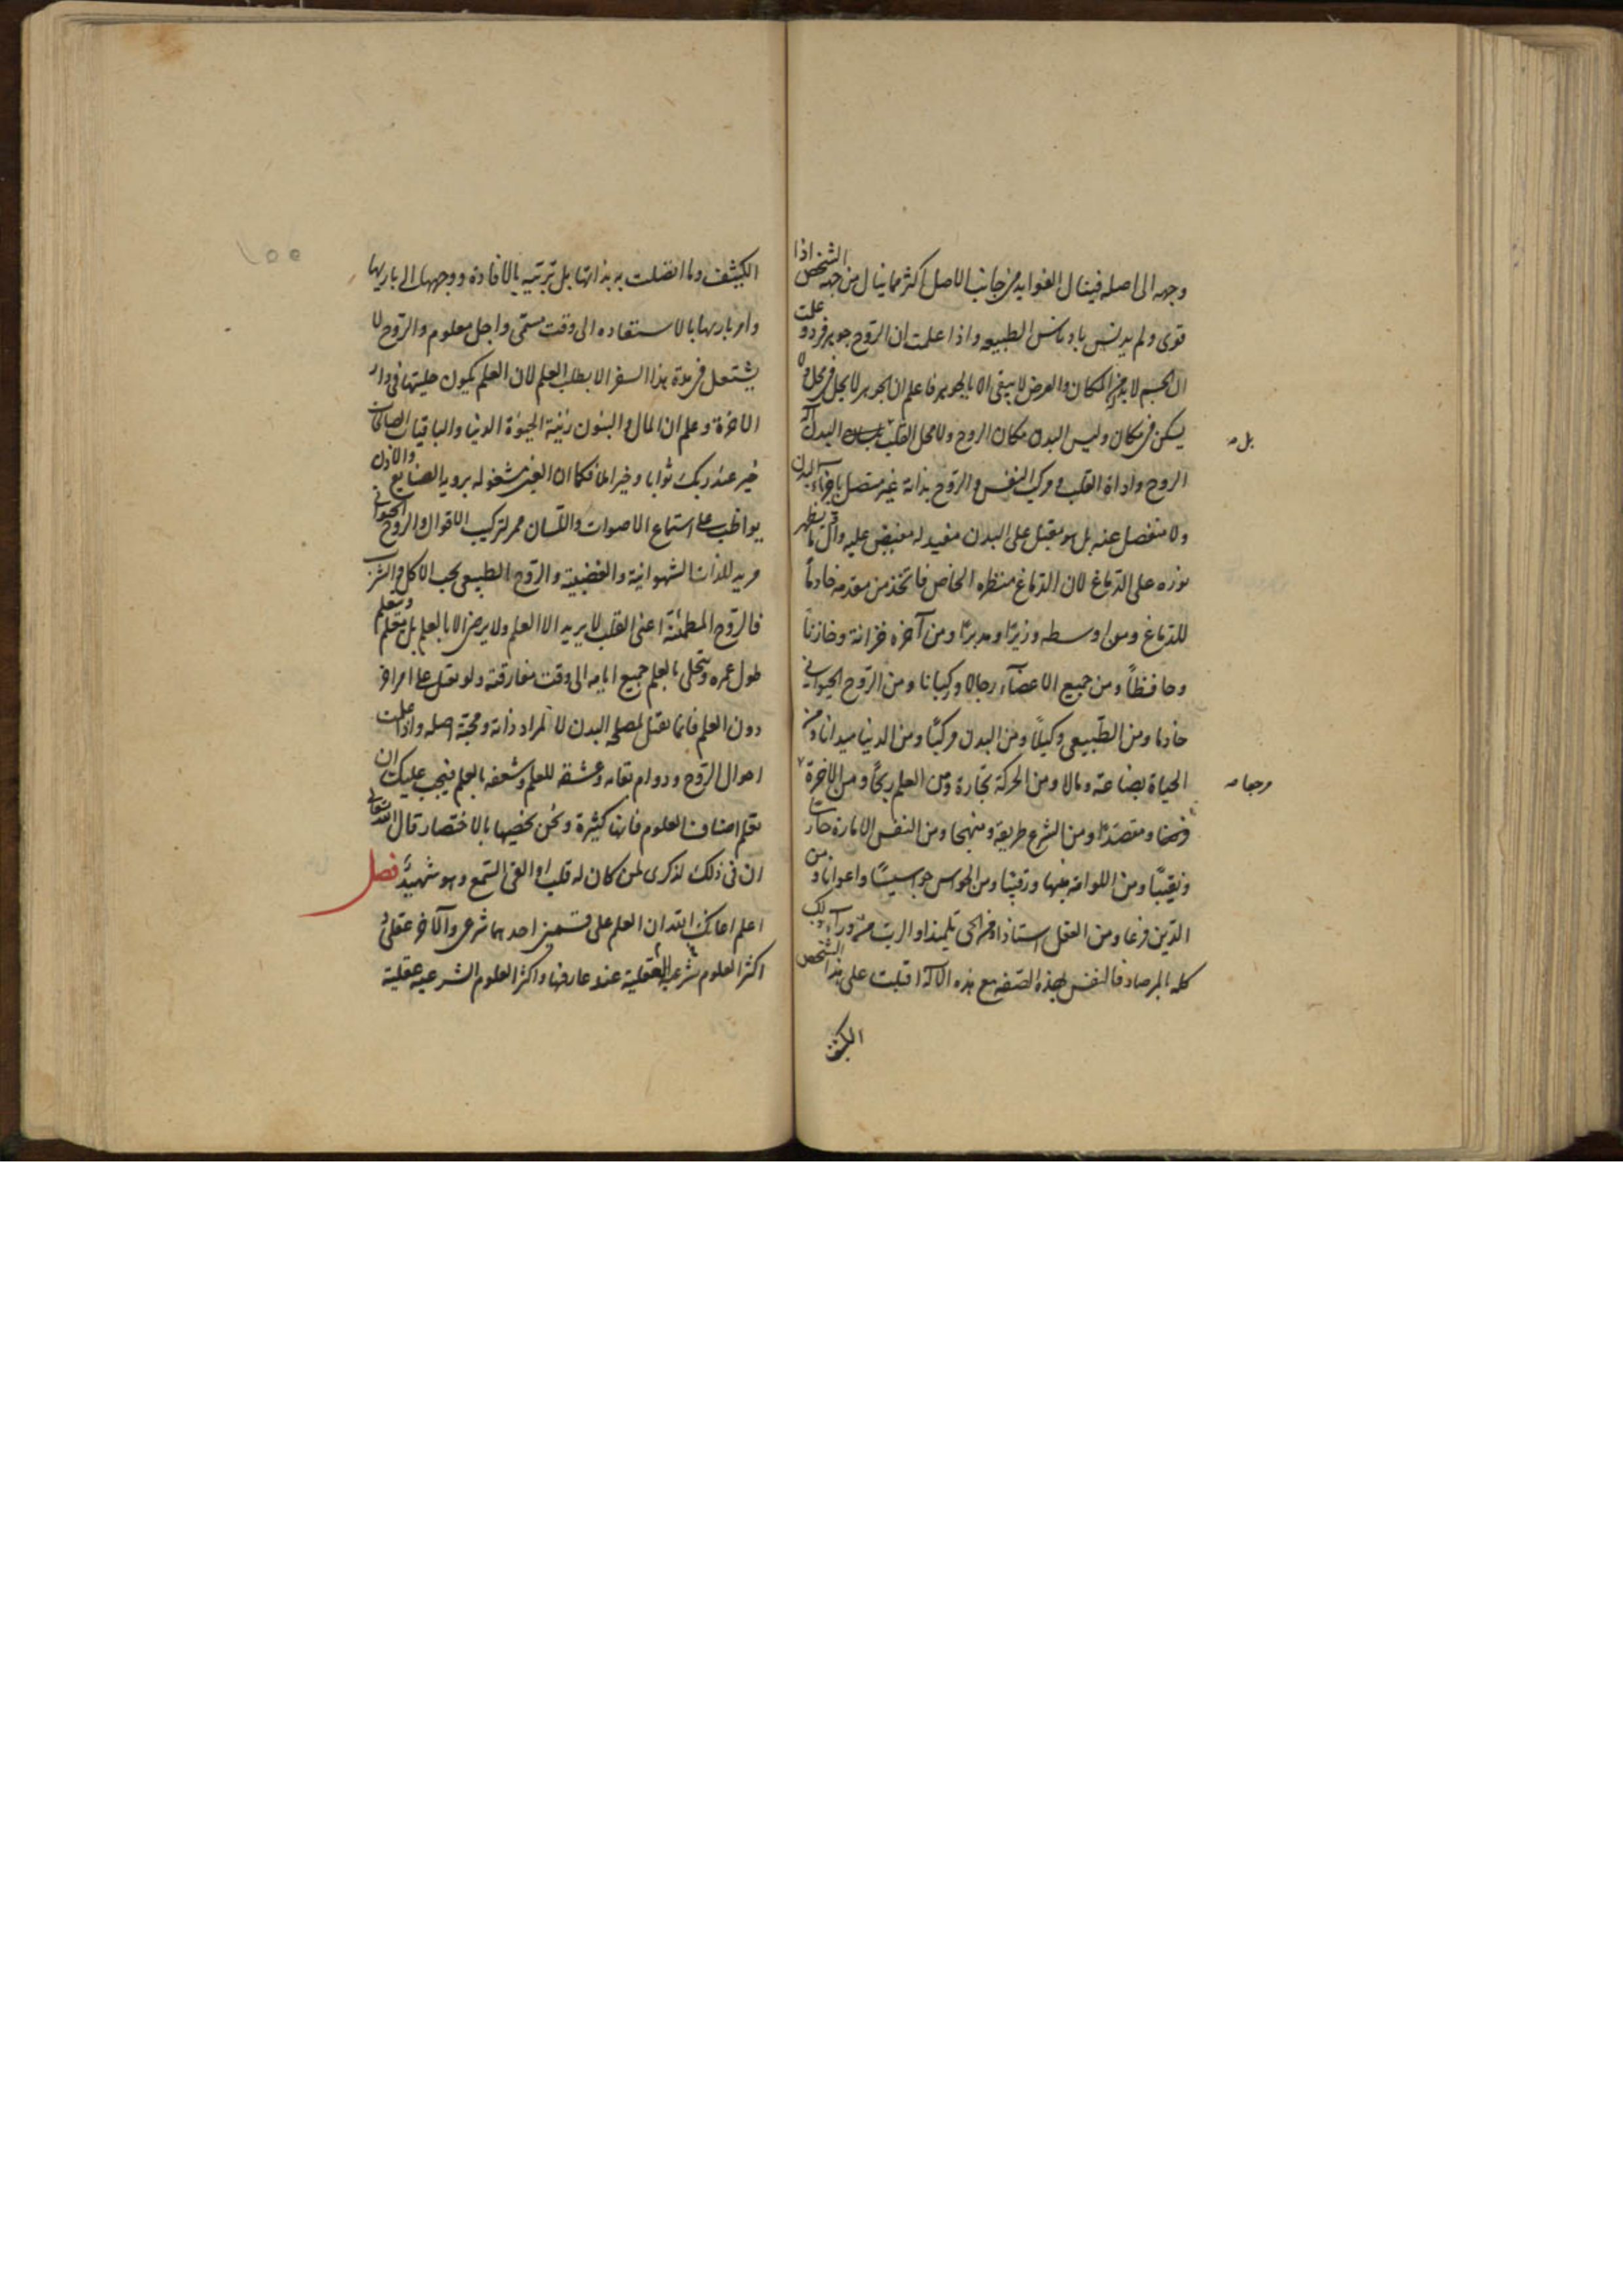 وجهه الى اصله فينال الفوايد من جانب الاصل اكثر مما ينال من جهة الشخص اذا
قوى ولم يدنس بادناس الطبيعه واذا علمت ان الروح جوهر فرد و علمت
ان الجسم لا بد له من المكان والعرض لا يبقى الا بالجوهر فاعلم ان الجوهر لا يحل فى محل ولا
يسكن فى مكان وليس البدن مكان الروح ولا محل القلب بل البدن آلة
بل صه
الروح واداة القلب و مركب النفس والروح بذاته غير متصل باجزاء البدن
ولا منفصل عنه بل هو مقبل على البدن مفيد له مفيض عليه واول ما يظهر
نوره على الدماغ لان الدماغ منظره الخاص فاتخذ من مقدمه خادماً
للدماغ ومن اوسطه وزيرًا ومدبرًا ومن آخره خزانة وخازناً
وحافظاً ومن جميع الاعضآء رجالا وركبانا ومن الروح الحيوانى
خادما ومن الطبيعى وكيلاً ومن البدن مركبًا ومن الدنيا ميدانا ومن
الحياة بضاعته ومالا ومن الحركة تجارة ومن العلم ربحًا ومن الاخرة
مرجعا صه
ومقصدًا ومن الشرع طريقه ومنهجا ومن النفس الامارة حارسا
ونقيبًا ومن اللوامه منبها ورقيبًا ومن الحواس جواسيسًا واعوانا ومن
الدين درعا ومن العقل استاذا ومن الحى تلميذا والرب من ورآء ذلك
كله بالمرصاد فالنفس بهذه الصفه مع هذه الآلة اقبلت على هذا الشخص
الكثيف
١٥٥
الكثيف وما اتصلت به بذاتها بل ترتبه بالافادة ووجهها الى باريها
وامر باريها بالاستفاده الى وقت مسمى واجل معلوم والروح لا
يشتغل فى مدة هذا السفر الا بطلب العلم لان العلم يكون حليتها فى دار
الاخرة وعلم ان المال والبنون زينة الحيوة الدنيا والباقيات الصالحات
خير عند ربك ثوابا وخير املا فكما ان العين مشغوله برويه الصنايع والاذن
يواظب على استماع الاصوات واللسان محرك لتركيب الاقوال والروح الحيوانى
مريد للذات الشهوانية والغضبية والروح الطبيعى يحب الاكل والشرب
فالروح المطمئنة اعنى القلب لا يريد الا العلم ولا يرضى الا بالعلم بل يتعلم
طول عمره ويتحلى بالعلم جميع ايامه الى وقت مفارقته ولو يقبل على امر اخر
دون العلم فانما يقبل لمصلحه البدن لا لمراد ذاته ومحبة اصله واذا علمت
احوال الروح ودوام بقائه وعشقه للعلم وشعفه بالعلم فيجب عليك ان
تعلم اصناف العلوم فانها كثيرة ونحن نحصيها بالاختصار قال الله تعالى
ان فى ذلك لذكرى لمن كان له قلب او القى السمع وهو شهيد فصل
اعلم اعانك الله ان العلم على قسمين احدهما شرعى والآخر عقلى و
اكثر العلوم شرعيه العقلية عند عارفها واكثر العلوم الشرعيه عقلية